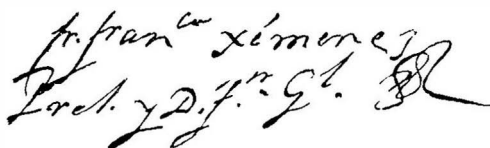 fr. fran^co ximenes
Prel. y D.if.^r G^l.